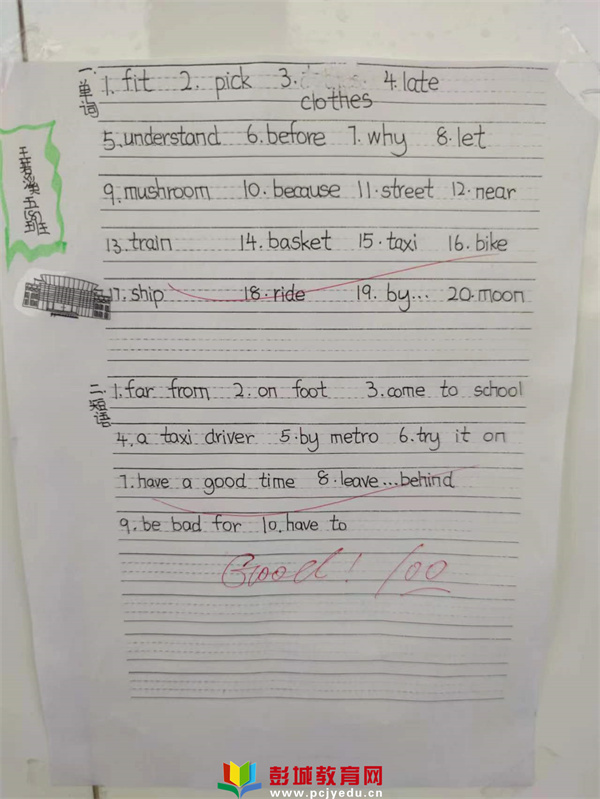 一.单词
1.fit 2. pick 3. clothes 4.late
5.understand 6.before 7.why 8.let
9.mushroom 10.because 11.street 12.near
13.train 14.basket 15.taxi 16.bike
17.ship 18.ride 19. by... 20.moon
二.短语
1.far from 2.on foot 3.come to school
4.a taxi driver 5.by metro 6.try it on
7.have a good time 8.leave...behind
9.be bad for 10.have to
Good! 100
彭城教育网
www.pcjyedu.cn